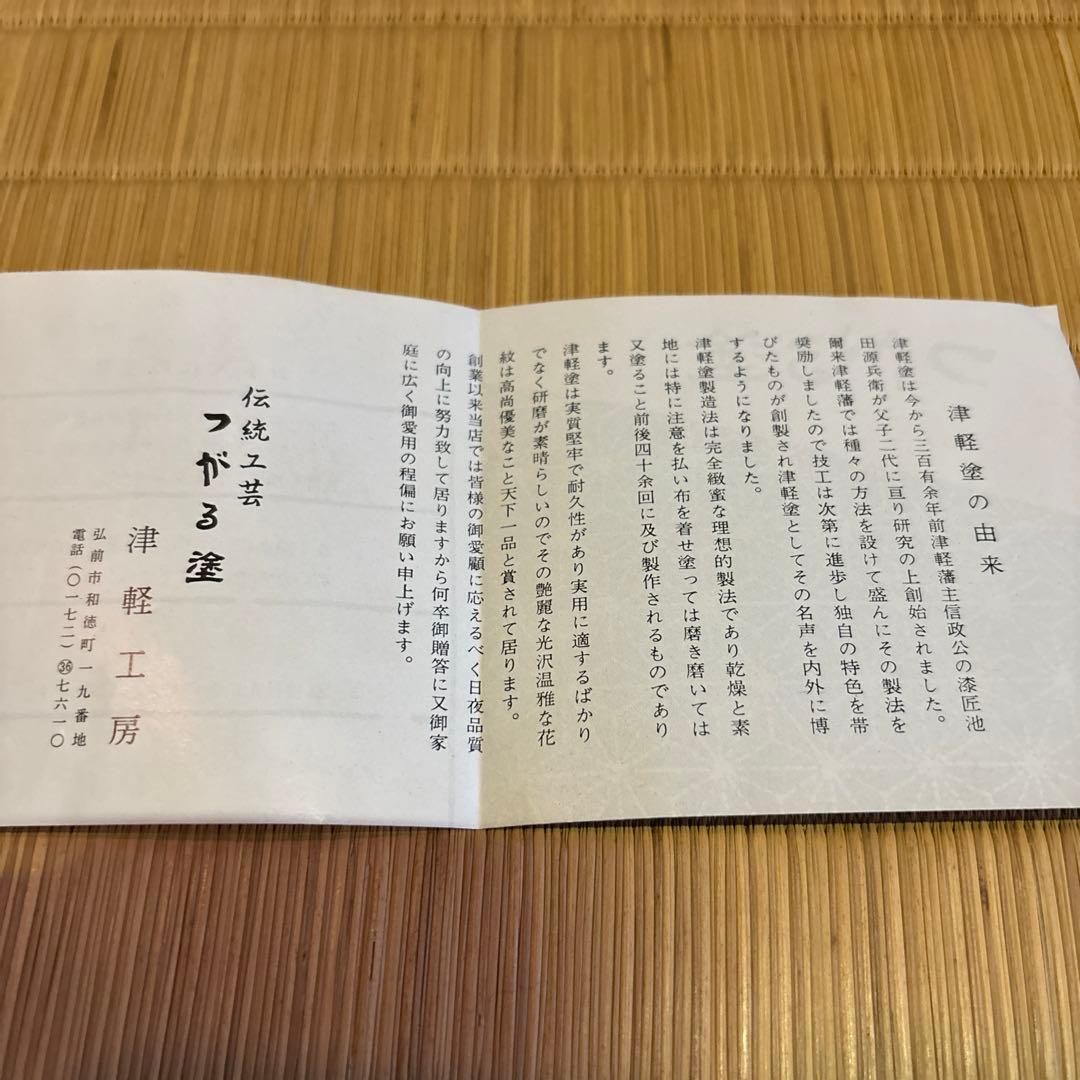 津軽塗の由来
津軽塗は今から三百有余年前津軽藩主信政公の漆匠池
田源兵衛が父子二代に亘り研究の上創始されました。
爾来津軽藩では種々の方法を設けて盛んにその製法を
奨励しましたので技工は次第に進歩し独自の特色を帯
びたものが創製され津軽塗としてその名声を内外に博
するようになりました。
津軽塗製造法は完全緻蜜な理想的製法であり乾燥と素
地には特に注意を払い布を着せ塗っては磨き磨いては
又塗ること前後四十余回に及び製作されるものであり
ます。
津軽塗は実質堅牢で耐久性があり実用に適するばかり
でなく研磨が素晴らしいのでその艶麗な光沢温雅な花
紋は高尚優美なこと天下一品と賞されて居ります。
創業以来当店では皆様の御愛顧に応えるべく日夜品質
の向上に努力致して居りますから何卒御贈答に又御家
庭に広く御愛用の程偏にお願い申上げます。
伝統工芸
つがる塗
津軽工房
弘前市和徳町一九番地
電話(〇一七二)㊱七六一〇